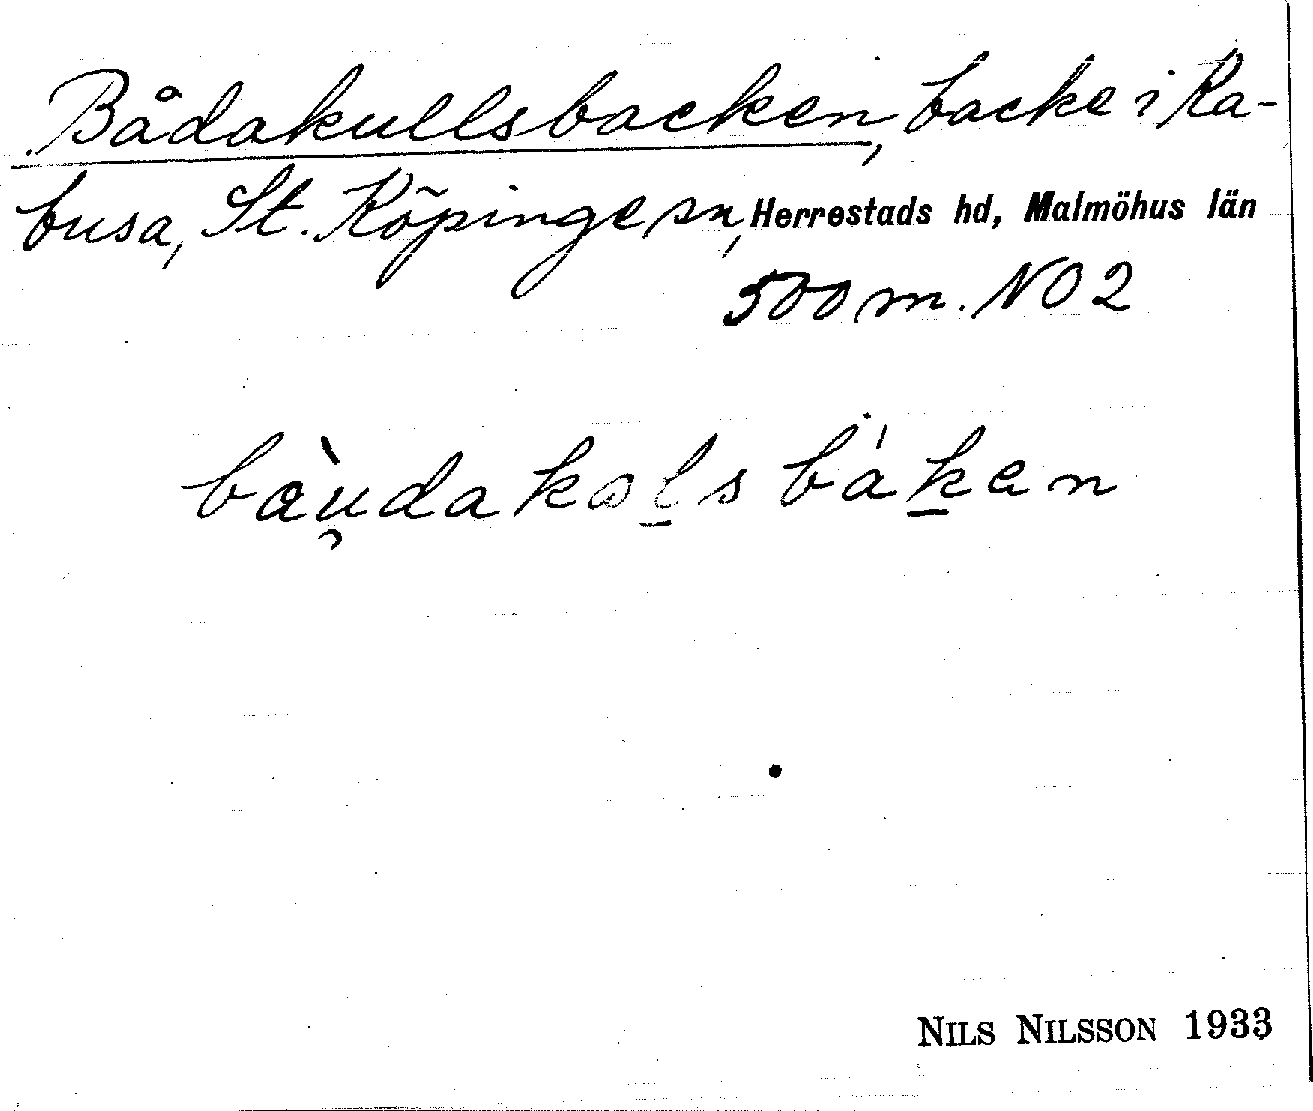 Bådakullsbacken, backe i Ka-
busa, St. Köpinge sn, Herrestads hd, Malmöhus län
500 m. NO 2
bàu̯dakoḻsbáḵen
NILS NILSSON 1933